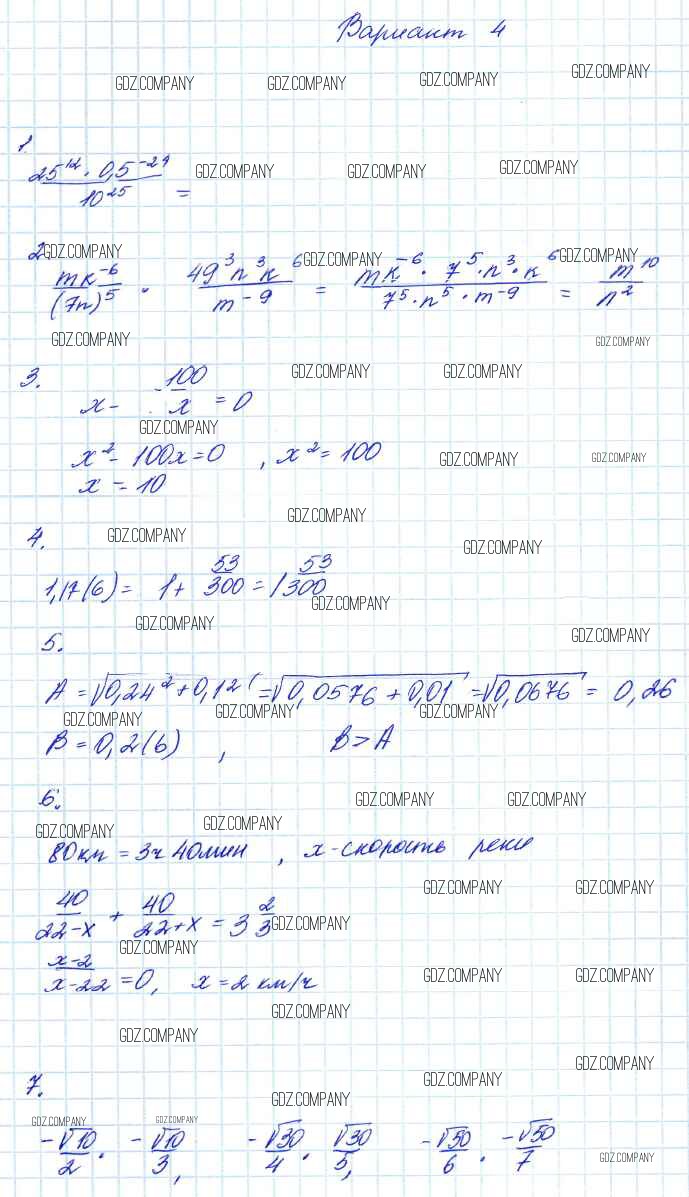 Вариант 4
GDZ.COMPANY GDZ.COMPANY GDZ.COMPANY GDZ.COMPANY
1.
25^12 · 0,5^-24 / 10^25 = GDZ.COMPANY GDZ.COMPANY GDZ.COMPANY
2. GDZ.COMPANY GDZ.COMPANY GDZ.COMPANY
mk^-6 / (7n)^5 · 49^3 n^3 k^6 / m^-9 = mk^-6 · 7^5 · n^3 · k^6 / 7^5 · n^5 · m^-9 = m^10 / n^2
GDZ.COMPANY GDZ.COMPANY
3. GDZ.COMPANY GDZ.COMPANY
x - 100/x = 0
GDZ.COMPANY
x^2 - 100x = 0 , x^2 = 100 GDZ.COMPANY GDZ.COMPANY
x = 10
GDZ.COMPANY
4. GDZ.COMPANY GDZ.COMPANY
1,17(6) = 1 + 53/300 = 1 53/300
GDZ.COMPANY
GDZ.COMPANY GDZ.COMPANY
5.
A = √0,24^2 + 0,1^2 = √0,0576 + 0,01 = √0,0676 = 0,26
GDZ.COMPANY GDZ.COMPANY GDZ.COMPANY
B = 0,2(6) , B > A
6. GDZ.COMPANY GDZ.COMPANY
GDZ.COMPANY GDZ.COMPANY
80км = 3ч 40мин , x - скорость реки
GDZ.COMPANY GDZ.COMPANY
40/22-x + 40/22+x = 3 2/3 GDZ.COMPANY
GDZ.COMPANY
x-2/x-22 = 0, x = 2 км/ч GDZ.COMPANY GDZ.COMPANY
GDZ.COMPANY
GDZ.COMPANY
GDZ.COMPANY
7. GDZ.COMPANY GDZ.COMPANY
GDZ.COMPANY GDZ.COMPANY
-√10/2 · -√10/3, -√30/4 · √30/5, -√50/6 · -√50/7
GDZ.COMPANY